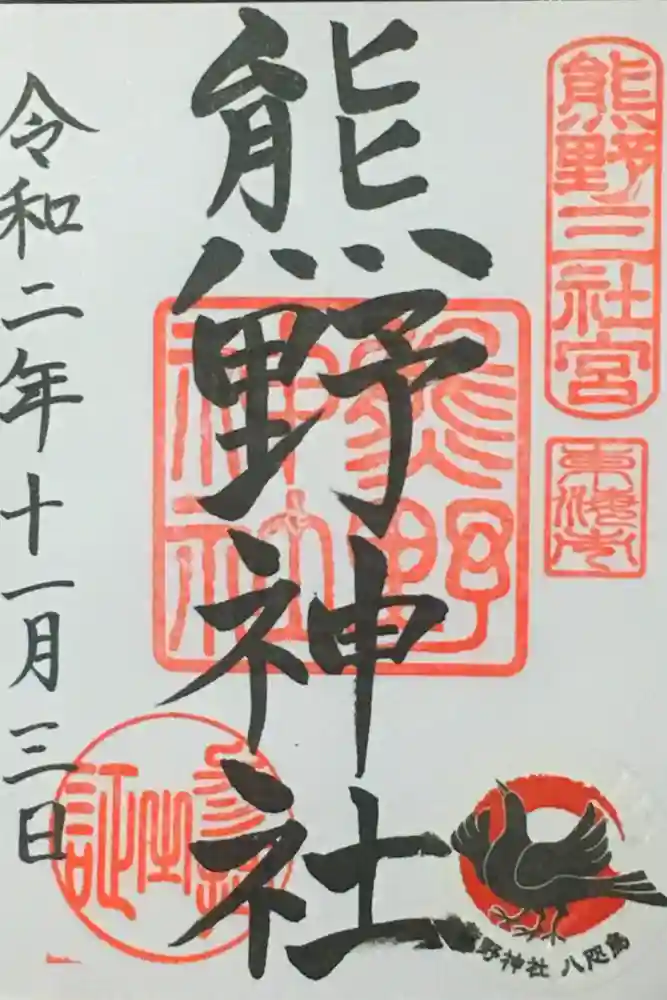 熊野三社宮
熊野神社
熊野神社
令和二年十一月三日
熊野神社 八咫烏